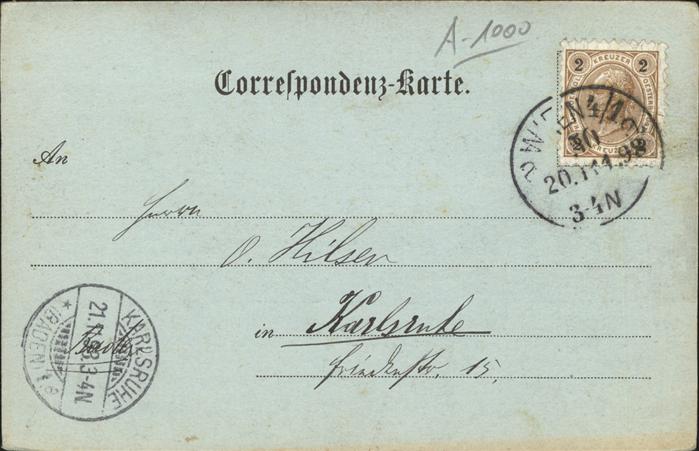 A-1000
Correspondenz-Karte.
2 KREUZER 2
WIEN 4/1
20.
98
3-4N
An
Herrn
O. Hilsen
in Karlsruhe
15.
KARLSRUHE
21. 98. 3-4N
(BADEN)
Baden